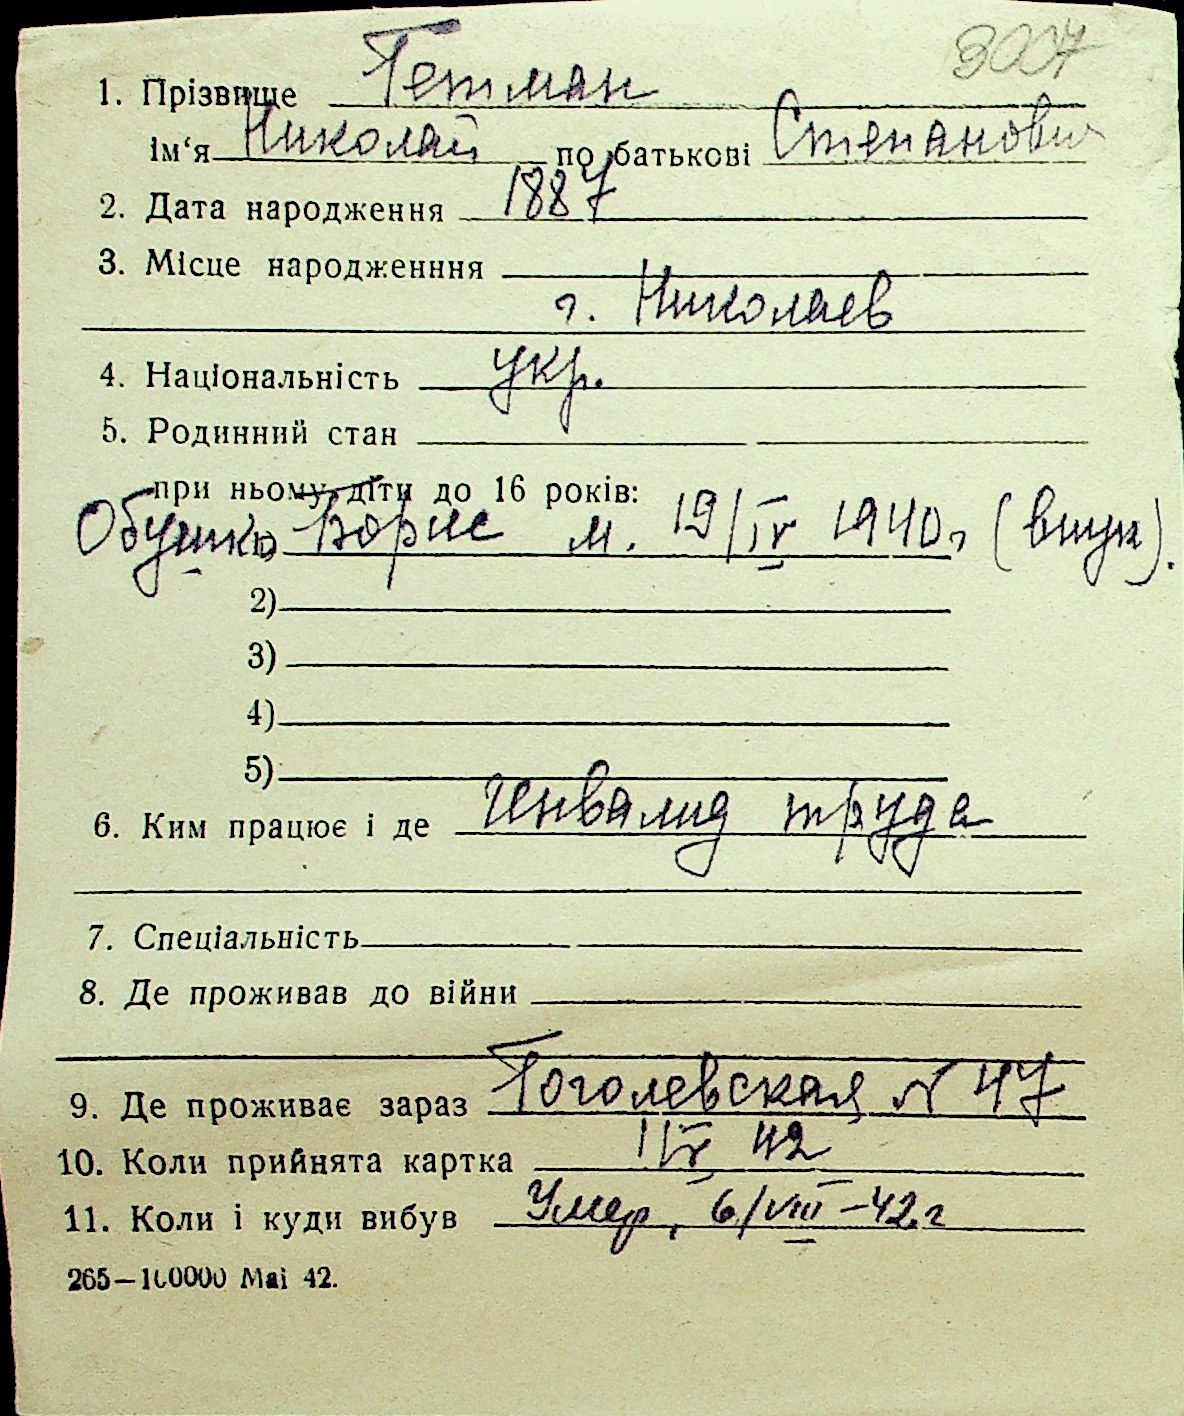 3007
1. Прізвище Гетман
Ім‘я Николай по батькові Степанович
2. Дата народження 1887
3. Місце народженння
г. Николаев
4. Національність укр.
5. Родинний стан
при ньому діти до 16 років:
Обушко Борис м. 19/IV 1940г (внук).
2)
3)
4)
5)
6. Ким працює і де Инвалид труда
7. Спеціальність
8. Де проживав до війни
9. Де проживає зараз Гоголевская N 47
10. Коли прийнята картка 1/IV 42
11. Коли і куди вибув Умер, 6/VIII–42г
265—100000 Mai 42.